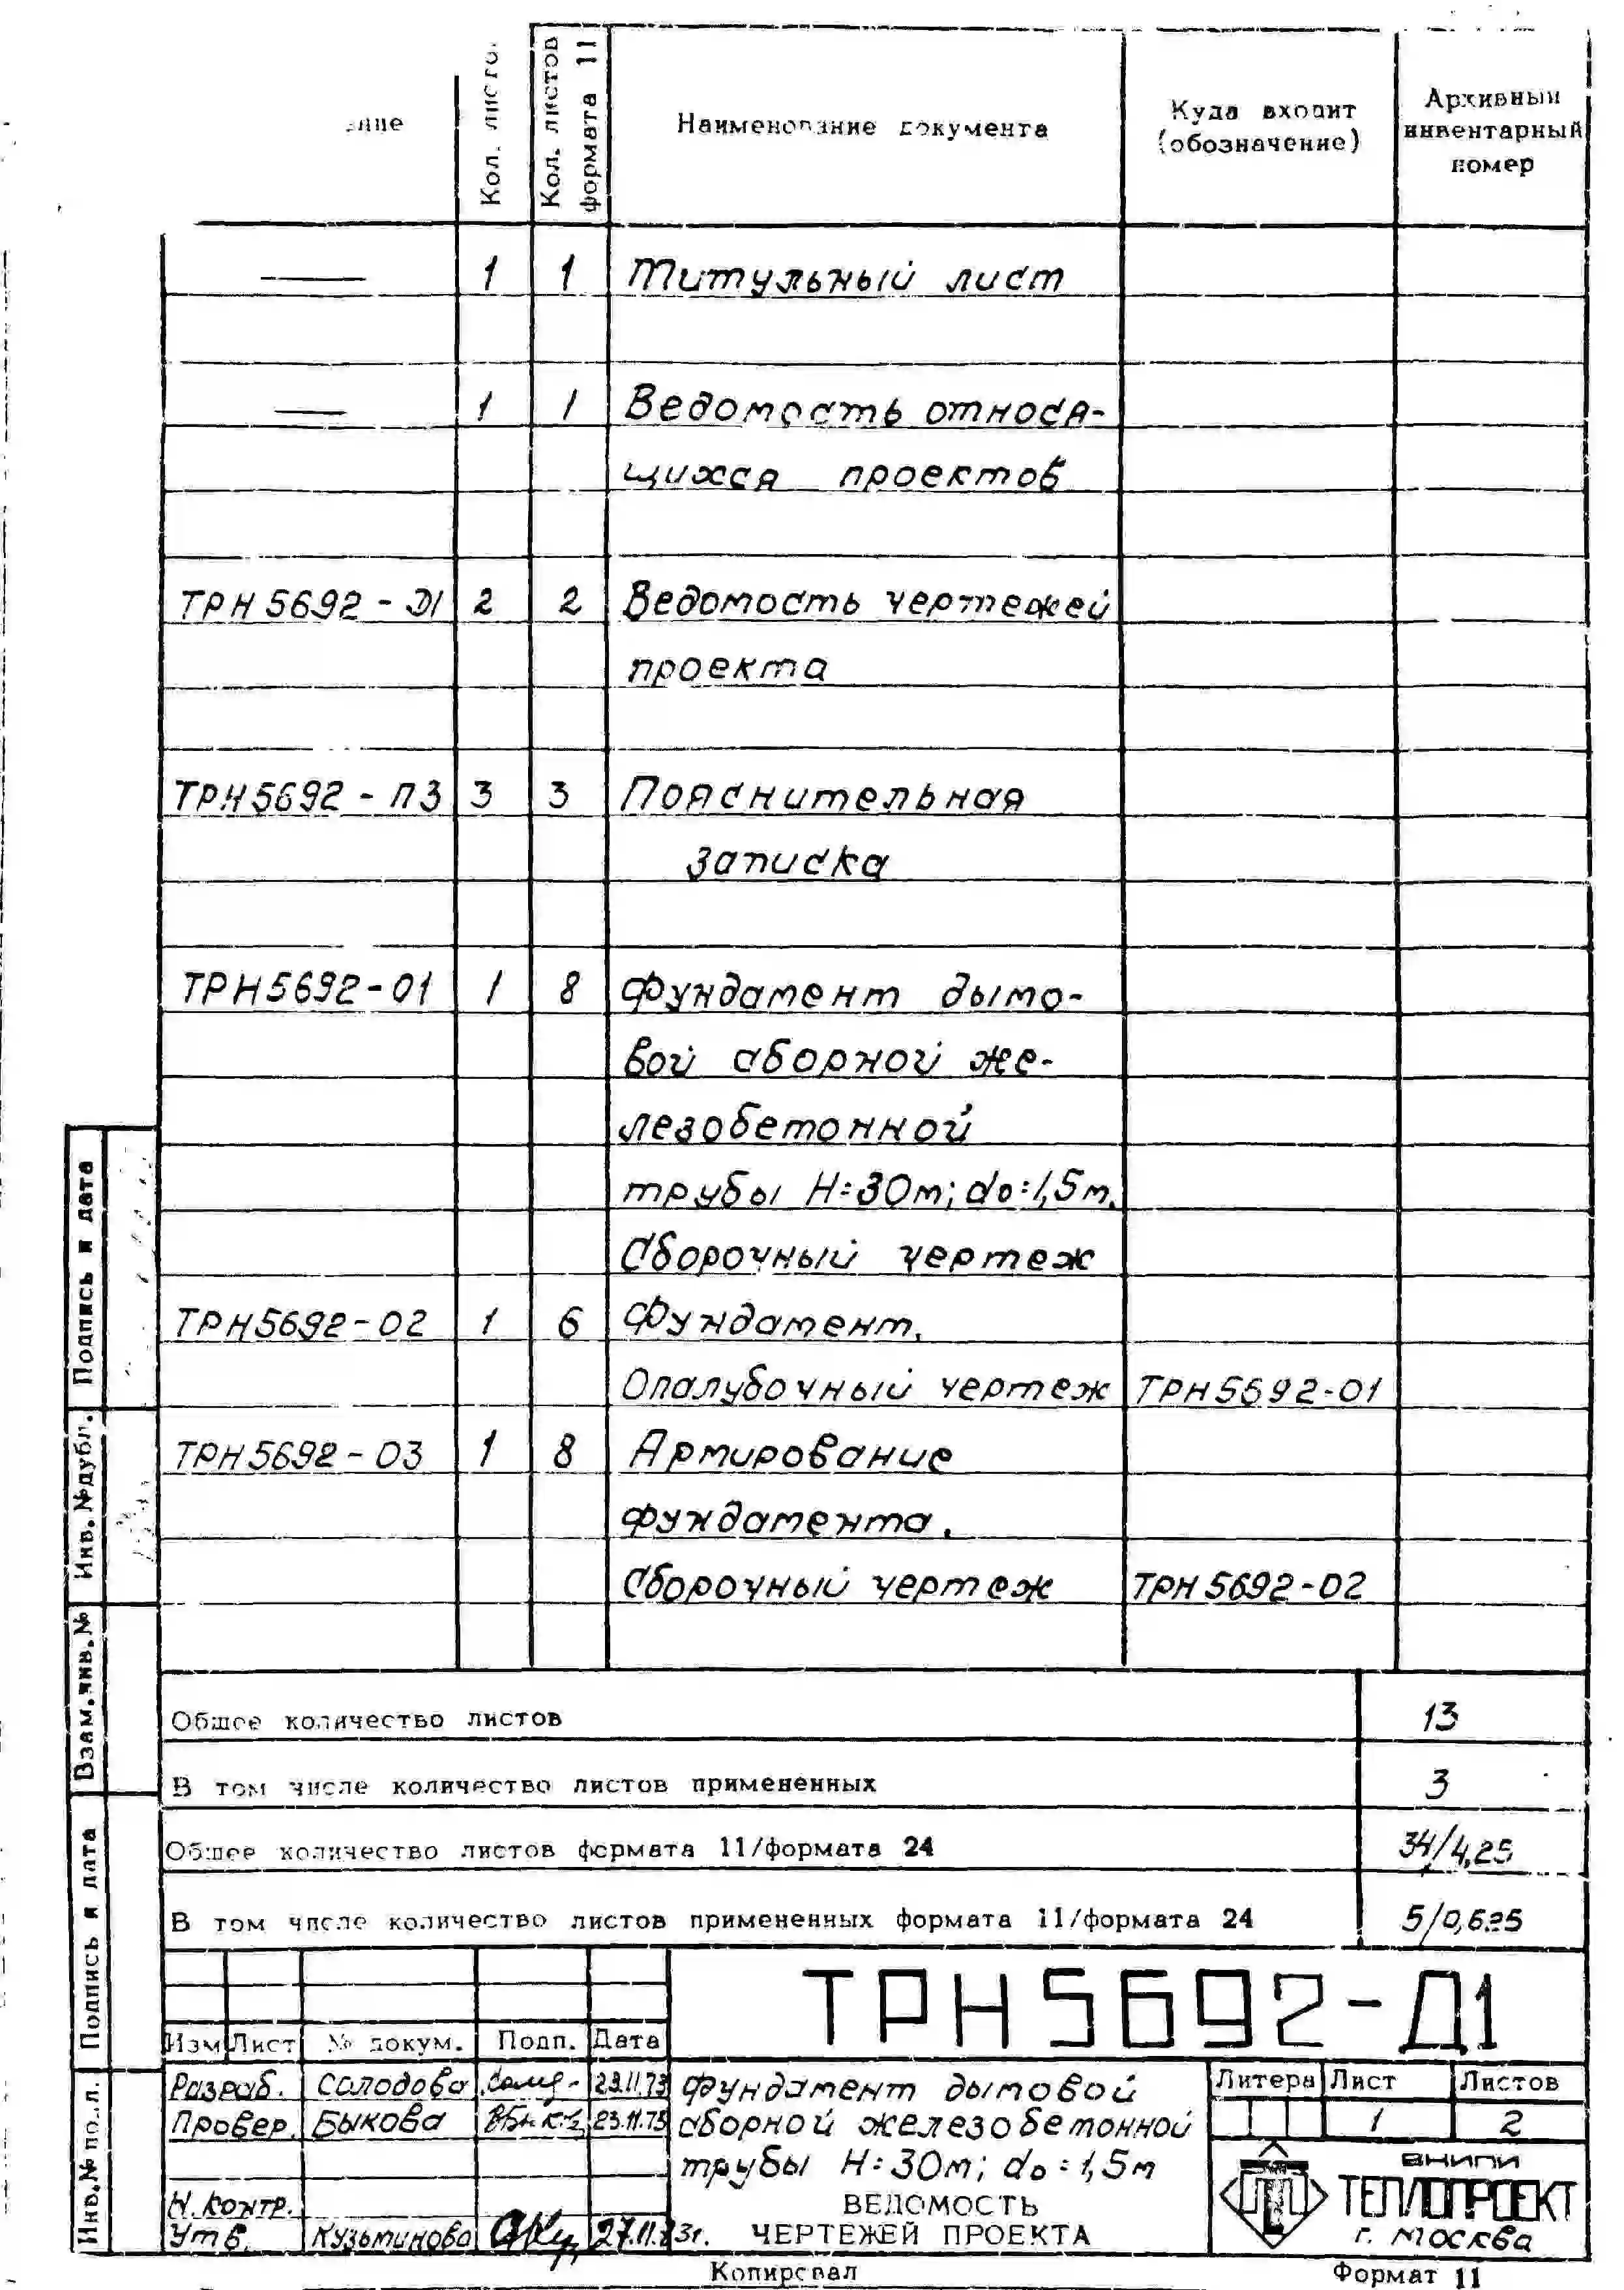 Кол. листо
Кол. листов
формата 11
Наименование документа
Куда входит
(обозначение)
Архивный
инвентарный
номер
— 1 1 Титульный лист
— 1 1 Ведомость относя-
щихся проектов
ТРН5692-Д1 2 2 Ведомость чертежей
проекта
ТРН5692-ПЗ 3 3 Пояснительная
записка
ТРН5692-01 1 8 Фундамент дымо-
вой сборной же-
лезобетонной
трубы Н=30м; do=1,5м.
Сборочный чертеж
ТРН5692-02 1 6 Фундамент.
Опалубочный чертеж ТРН5692-01
ТРН5692-03 1 8 Армирование
фундамента.
Сборочный чертеж ТРН5692-02
Общее количество листов 13
В том числе количество листов примененных 3
Общее количество листов формата 11/формата 24 34/4,25
В том числе количество листов примененных формата 11/формата 24 5/0,625
Подпись и дата
Инв. № дубл.
Взам. инв. №
Подпись и дата
Инв. № по.. л.
ТРН5692-Д1
Изм Лист № докум. Подп. Дата
Разраб. Солодова 23.11.73
Провер. Быкова 23.11.73
Н.контр.
Утв. Кузьминова 27.11.73г.
Фундамент дымовой
сборной железобетонной
трубы Н=30м; do=1,5м
ВЕДОМОСТЬ
ЧЕРТЕЖЕЙ ПРОЕКТА
Литера Лист Листов
1 2
ВНИПИ
ТЕПЛОПРОЕКТ
г. Москва
Копировал
Формат 11